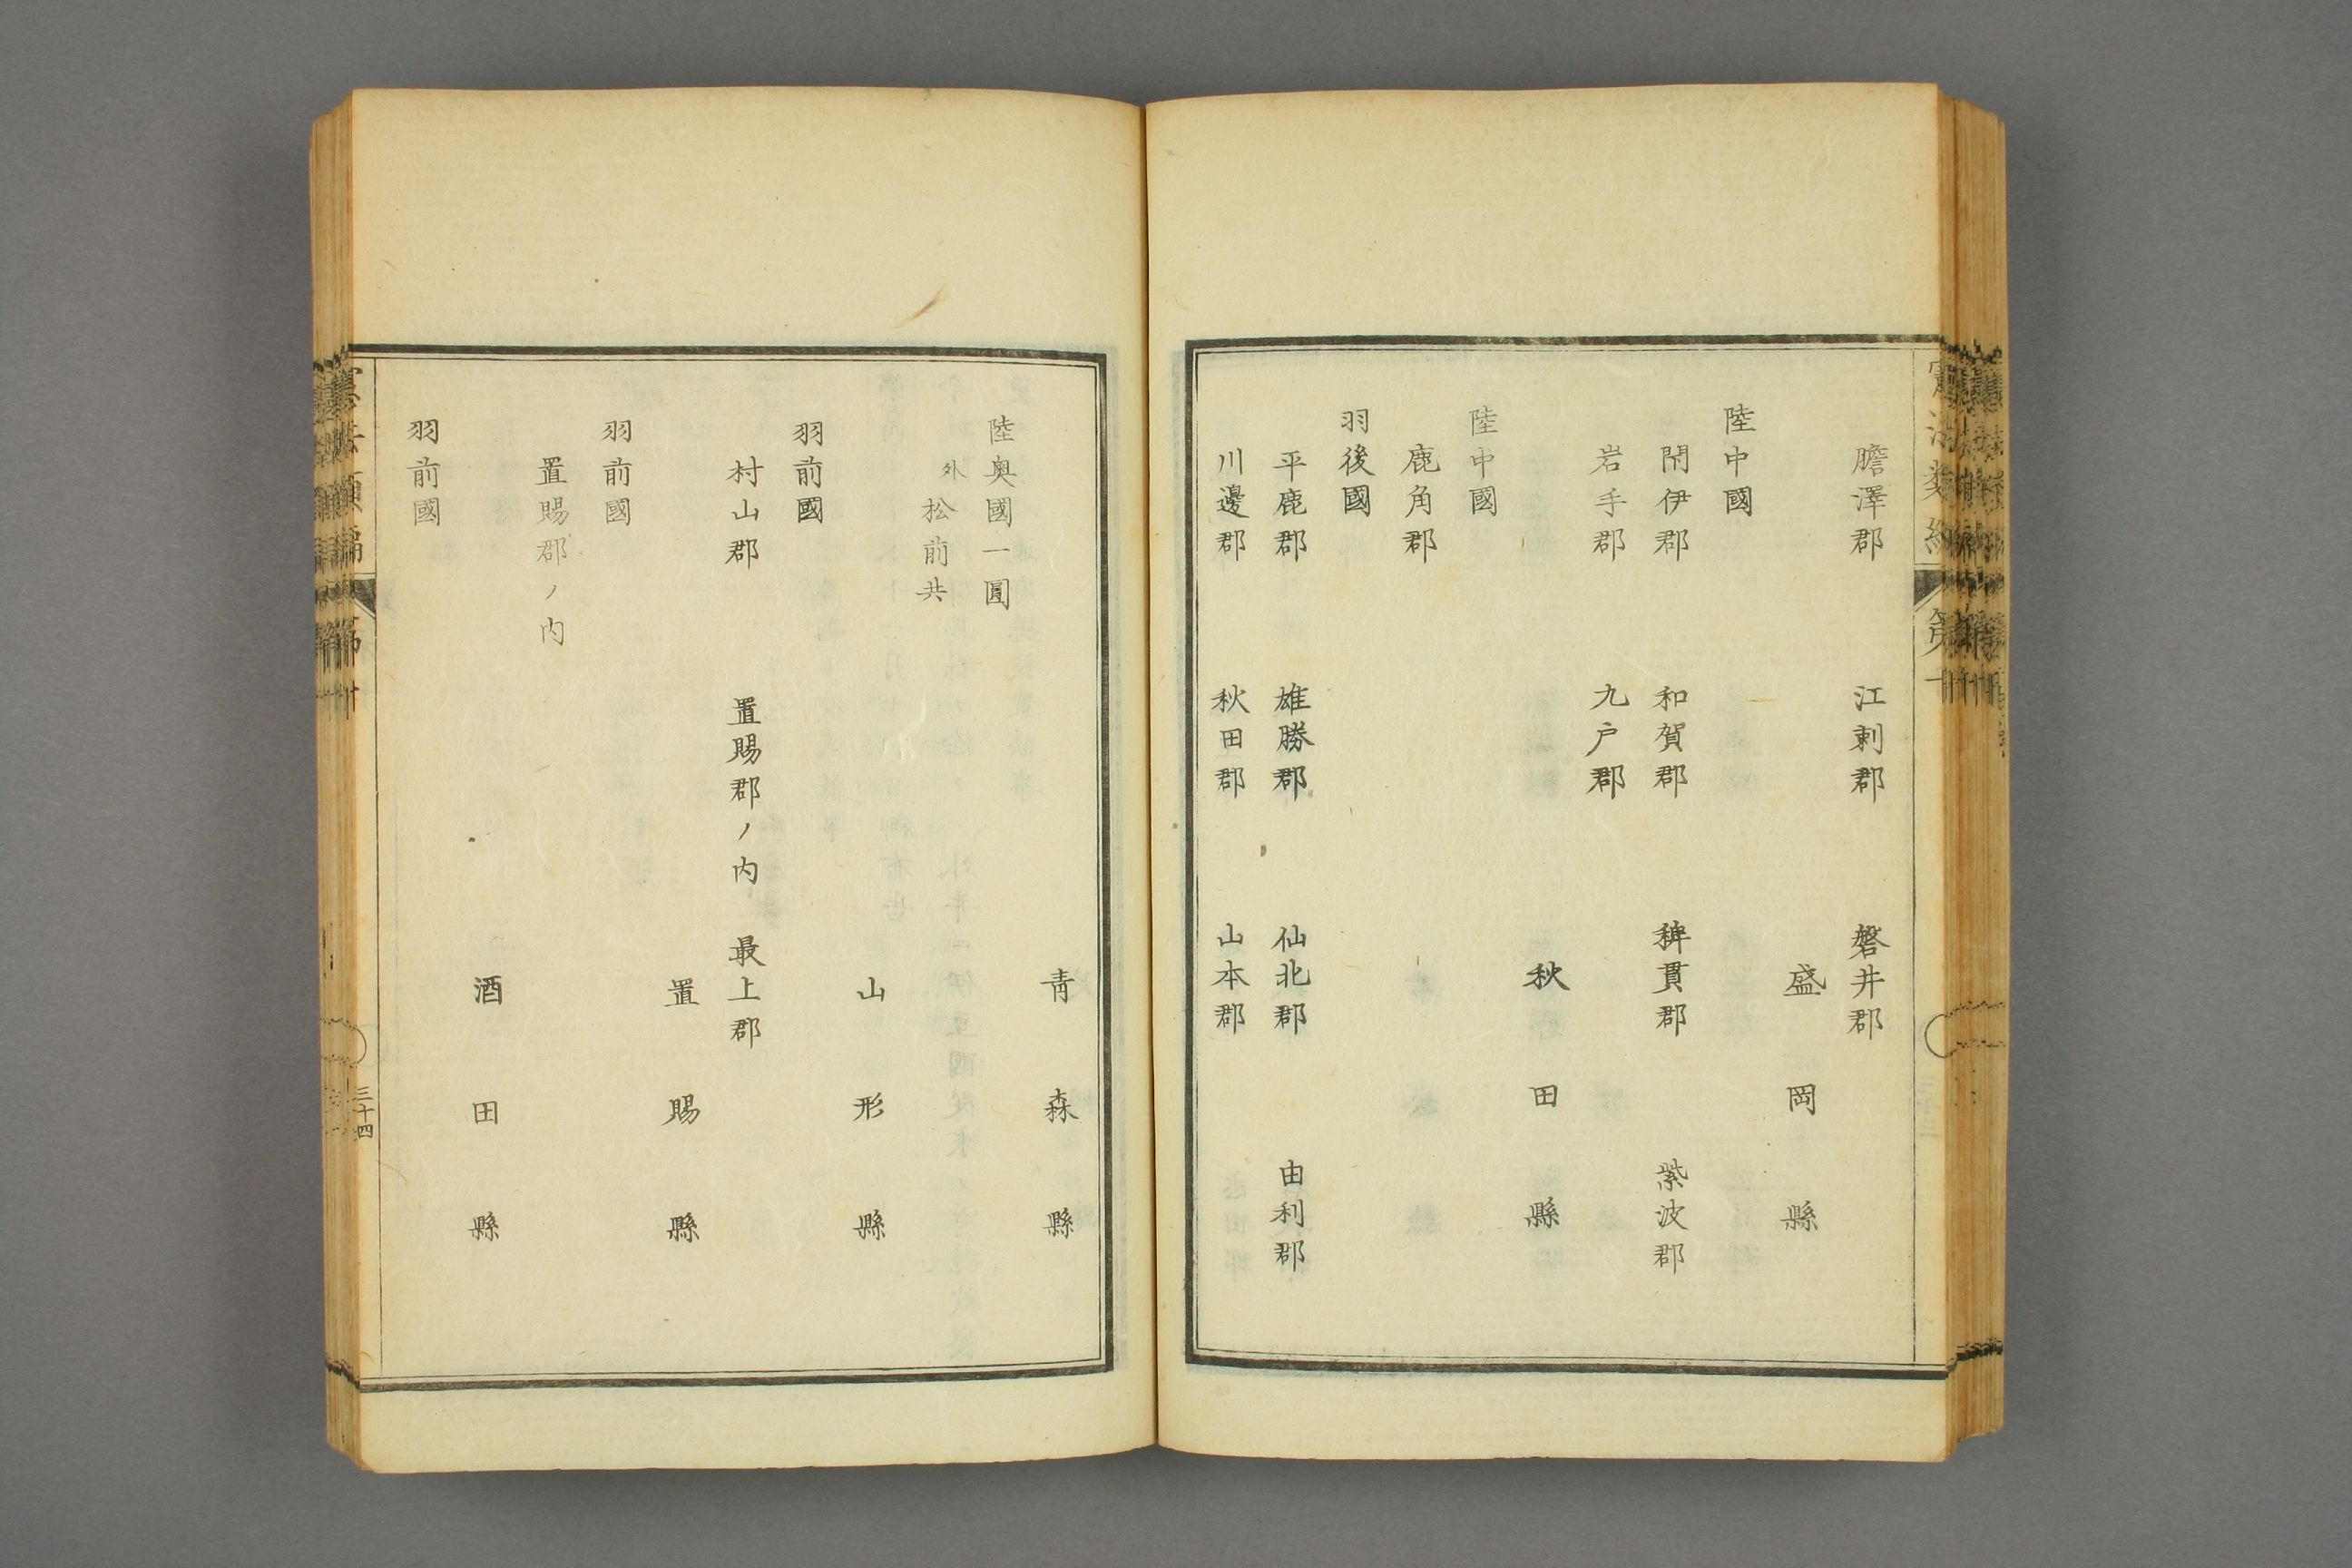 膽澤郡 江刺郡 磐井郡
盛岡縣
陸中國
閉伊郡 和賀郡 稗貫郡 紫波郡
岩手郡 九戸郡
秋田縣
陸中國
鹿角郡
羽後國
平鹿郡 雄勝郡 仙北郡 由利郡
川邊郡 秋田郡 山本郡
青森縣
陸奧國一圓
外松前共
山形縣
羽前國
村山郡 置賜郡ノ内 最上郡
置賜縣
羽前國
置賜郡ノ内
酒田縣
羽前國
三十四